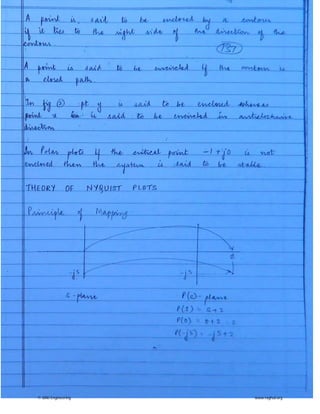 A point is said to be enclosed by a contour
if it lies to the right side of the direction of the
contour.
137
A point is said to be encircled if the contour is
a closed path.
In fig ② pt y is said to be enclosed whereas
point x is said to be encircled in anticlockwise
direction
In Polar plots if the critical point -1+j0 is not
enclosed then the system is said to be stable
THEORY OF NYQUIST PLOTS
Principle of Mapping
-j5 -j5
S-plane P(s)-plane
= s+2
P(0) = 0+2
P(-j5) = -j5+2
www.raghul.org